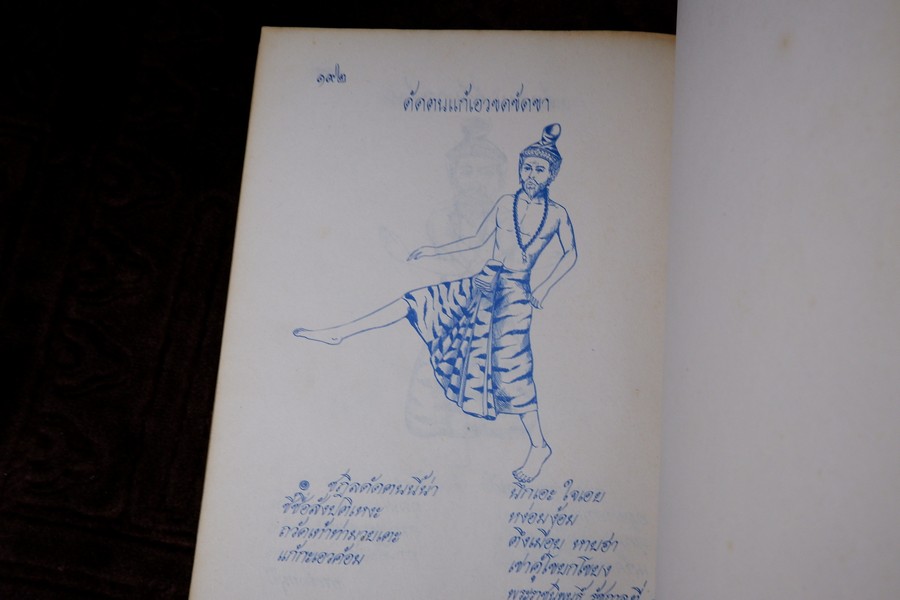 ๑๙๒
ดัดตนแก้เอวขดขัดขา
๏ ชฎิลดัดตนนี้น้า
นึกเอะ ใจเอย
ชื่อสังปติเหงะ
หง่อมง้อม
ถวัดเท้าท่ามวยเตะ
ตึงเมื่อย หายฮา
แก้กะเอวค้อม
เข่าคู้โขยกโขยง